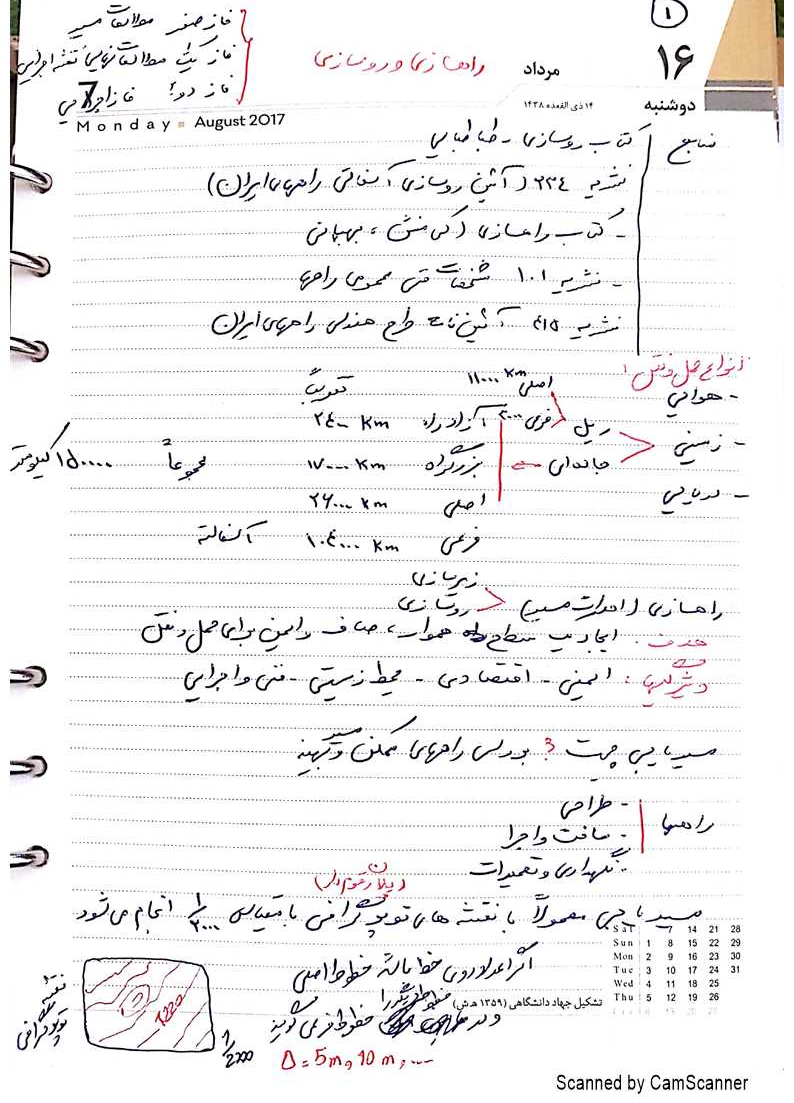 ۱
فاز صفر مطالعات مسیر
فاز یک مطالعات نهایی نقشه اجرایی
فاز دو؛ فاز اجرایی
راهسازی و روسازی
۱۶
مرداد
دوشنبه
۱۴ ذی القعده ۱۴۳۸
Monday August 2017 7
منابع
کتاب روسازی - طباطبایی
نشریه ۲۳۴ (آئین روسازی آسفالتی راههای ایران)
- کتاب راهسازی (کی منش، بهبهانی
- نشریه ۱۰۱ مشخصات فنی عمومی راهها
نشریه ۴۱۵ آئین نامه طرح هندسی راههای ایران
انواع حمل و نقل:
- هوایی
- زمینی
- دریایی
ریل
اصلی ۱۱۰۰۰ km
فرعی ۲۰۰۰
جاده ای
تقریباً
آزادراه ۲۴۰۰ km
بزرگراه ۱۷۰۰۰ km
مجموعاً ۱۵۰۰۰۰ کیلومتر
اصلی ۲۶۰۰۰ km
فرعی ۱۰۴۰۰۰ km آسفالته
راهسازی (احداث مسیر)
زیرسازی
روسازی
هدف: ایجاد یک سطح هموار، صاف و ایمن برای حمل و نقل
ویژگیها: ایمنی - اقتصادی - محیط زیستی - فنی و اجرایی
مسیریابی چیست؟ بررسی راههای ممکن و مسیر بهینه
راهها
- طراحی
- ساخت و اجرا
- نگهداری و تعمیرات
(پلان رقوم دار)
مسیریابی معمولاً با نقشه های توپوگرافی با مقیاس ۱/۲۰۰۰ انجام می شود
اگر اعداد روی خط باشد خطوط اصلی
خطوط فرعی گویند
Δ = 5m, 10m, ...
نقشه توپوگرافی
1220
1/2000
تشکیل جهاد دانشگاهی (۱۳۵۹ ه.ش)
Sat 7 14 21 28
Sun 1 8 15 22 29
Mon 2 9 16 23 30
Tue 3 10 17 24 31
Wed 4 11 18 25
Thu 5 12 19 26
Fri 6 13 20 27
Scanned by CamScanner